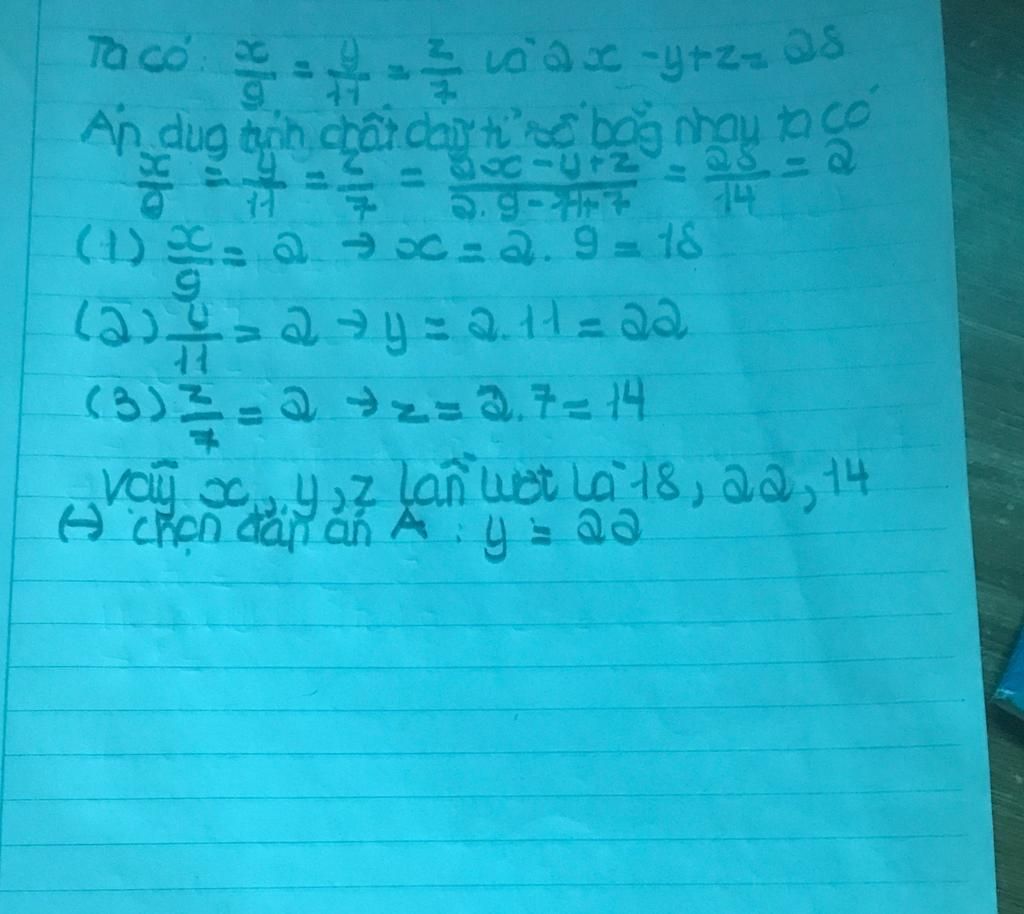 Ta có: x/9 = y/11 = z/7 và 2x - y + z = 28
Áp dụg tính chất dãy tỉ số bằg nhau ta có
x/9 = y/11 = z/7 = 2x - y + z / 2.9 - 11 + 7 = 28/14 = 2
(1) x/9 = 2 → x = 2.9 = 18
(2) y/11 = 2 → y = 2.11 = 22
(3) z/7 = 2 → z = 2.7 = 14
vậy x, y, z lần lượt là 18, 22, 14
(→) chọn đáp án A : y = 22